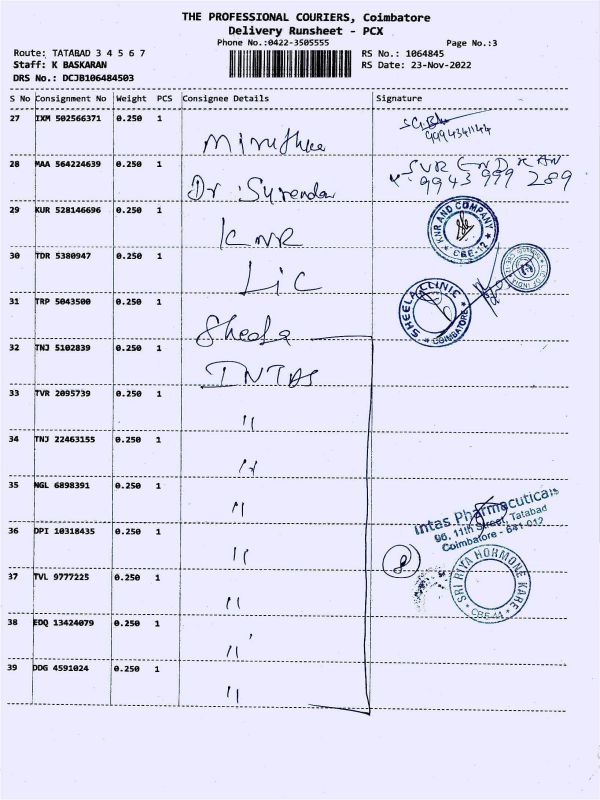 THE PROFESSIONAL COURIERS, Coimbatore
Delivery Runsheet - PCX
Phone No.:0422-3505555 Page No.:3
Route: TATABAD 3 4 5 6 7 RS No.: 1064845
Staff: K BASKARAN RS Date: 23-Nov-2022
DRS No.: DCJB106484503
S No Consignment No Weight PCS Consignee Details Signature
27 IXM 502566371 0.250 1
9994341144
28 MAA 564224639 0.250 1 Dr. Surendar
9943 999 289
29 KUR 528146696 0.250 1 KNR
KNR AND COMPANY
CBE-12
30 TDR 5380947 0.250 1 LIC
31 TRP 5043500 0.250 1 Sheela
SHEELA CLINIC
COIMBATORE
32 TNJ 5102839 0.250 1 INTAS
33 TVR 2095739 0.250 1 "
34 TNJ 22463155 0.250 1 "
35 NGL 6898391 0.250 1 "
Intas Pharmacuticals
96, 11th Street, Tatabad
Coimbatore - 641 012
36 DPI 10318435 0.250 1 "
8
37 TVL 9777225 0.250 1 "
SRI RIYA HORMONE KARE
CBE-44
38 EDQ 13424079 0.250 1 "
39 DDG 4591024 0.250 1 "